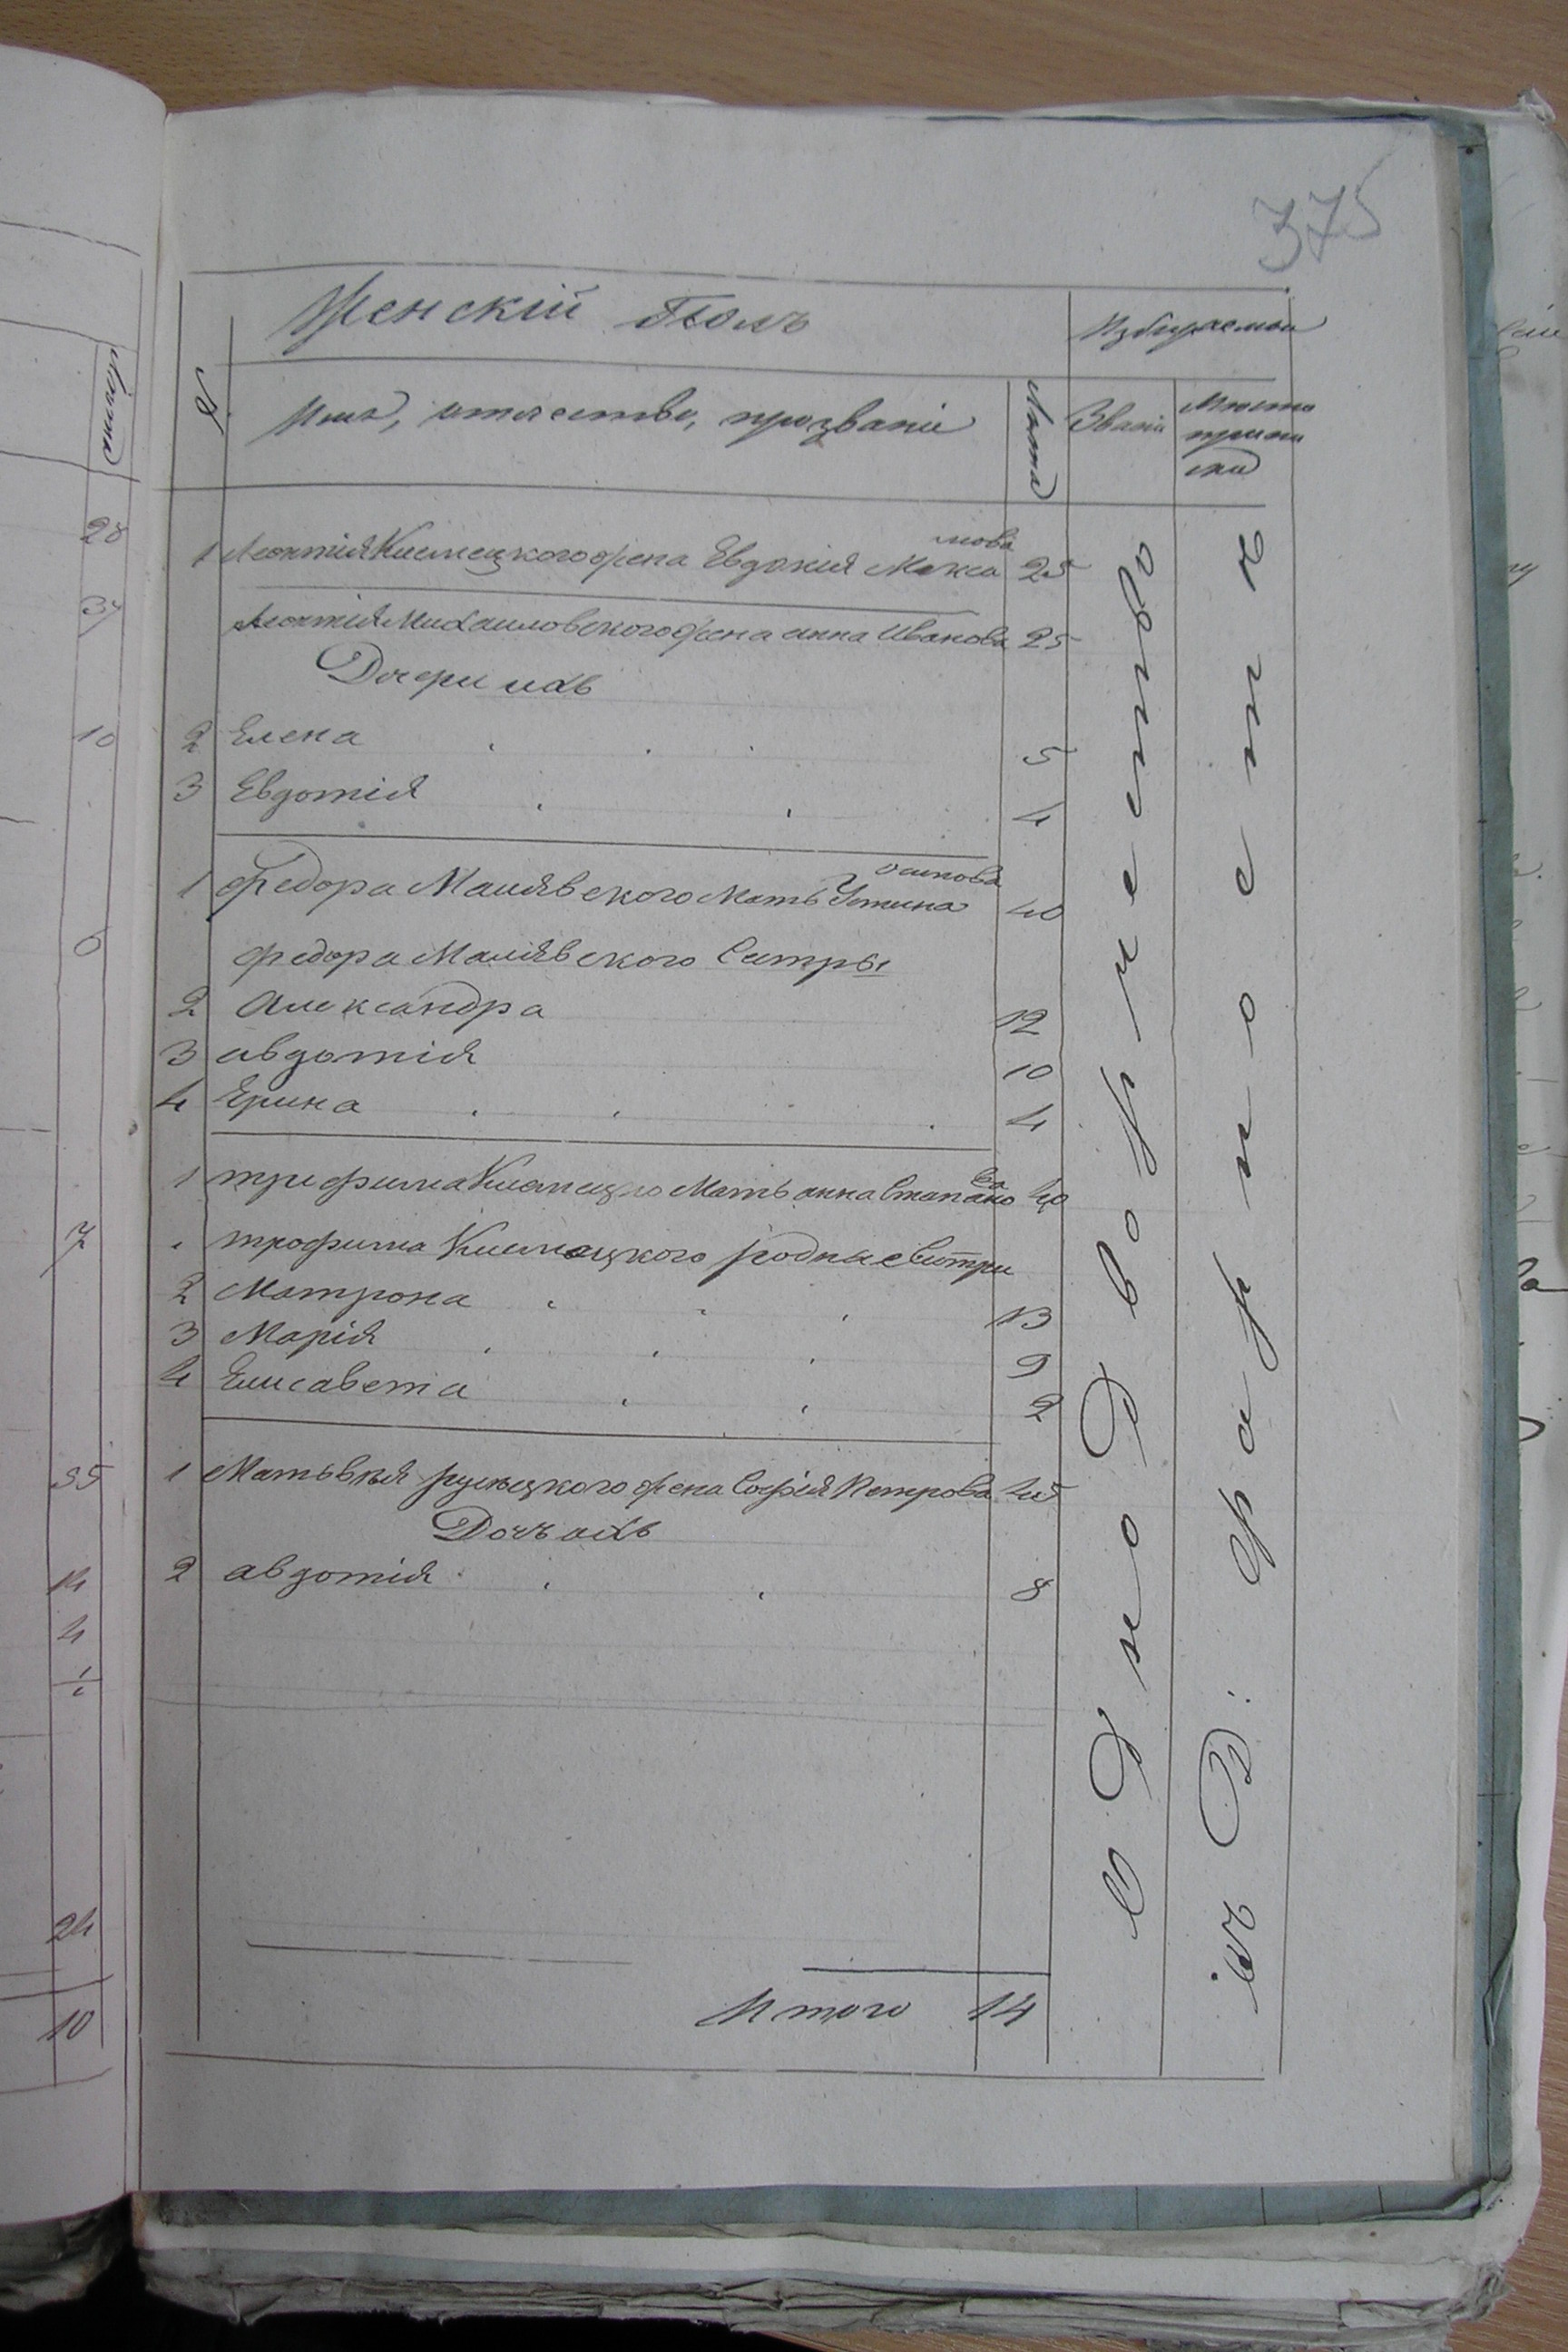 375
Женскій Полъ
Избираемыи
№
Имя, отчество, прозваніе
Лѣта
Званіе
Мѣсто припи ски
1 Леонтія жена Евдокія Макси мова 25
Леонтія Михаиловского жена анна Иванова 25
Дочери ихъ
2 Елена 5
3 Евдотія 4
1 Федора Малявского Мать Устина осипова 40
федора Малявского Систры
2 Александра 12
3 авдотія 10
4 Ерина 4
1 Мать анна Степано ва 40
трофима родные Систри
2 Матрона 13
3 Марія 9
4 Елисавета 2
1 Матьвѣя жена Софія Петрова 45
Дочъ ихъ
2 авдотія 8
Итого 14
Однодворчество
въ Д:
28
34
10
6
7
35
14
4
1
24
10